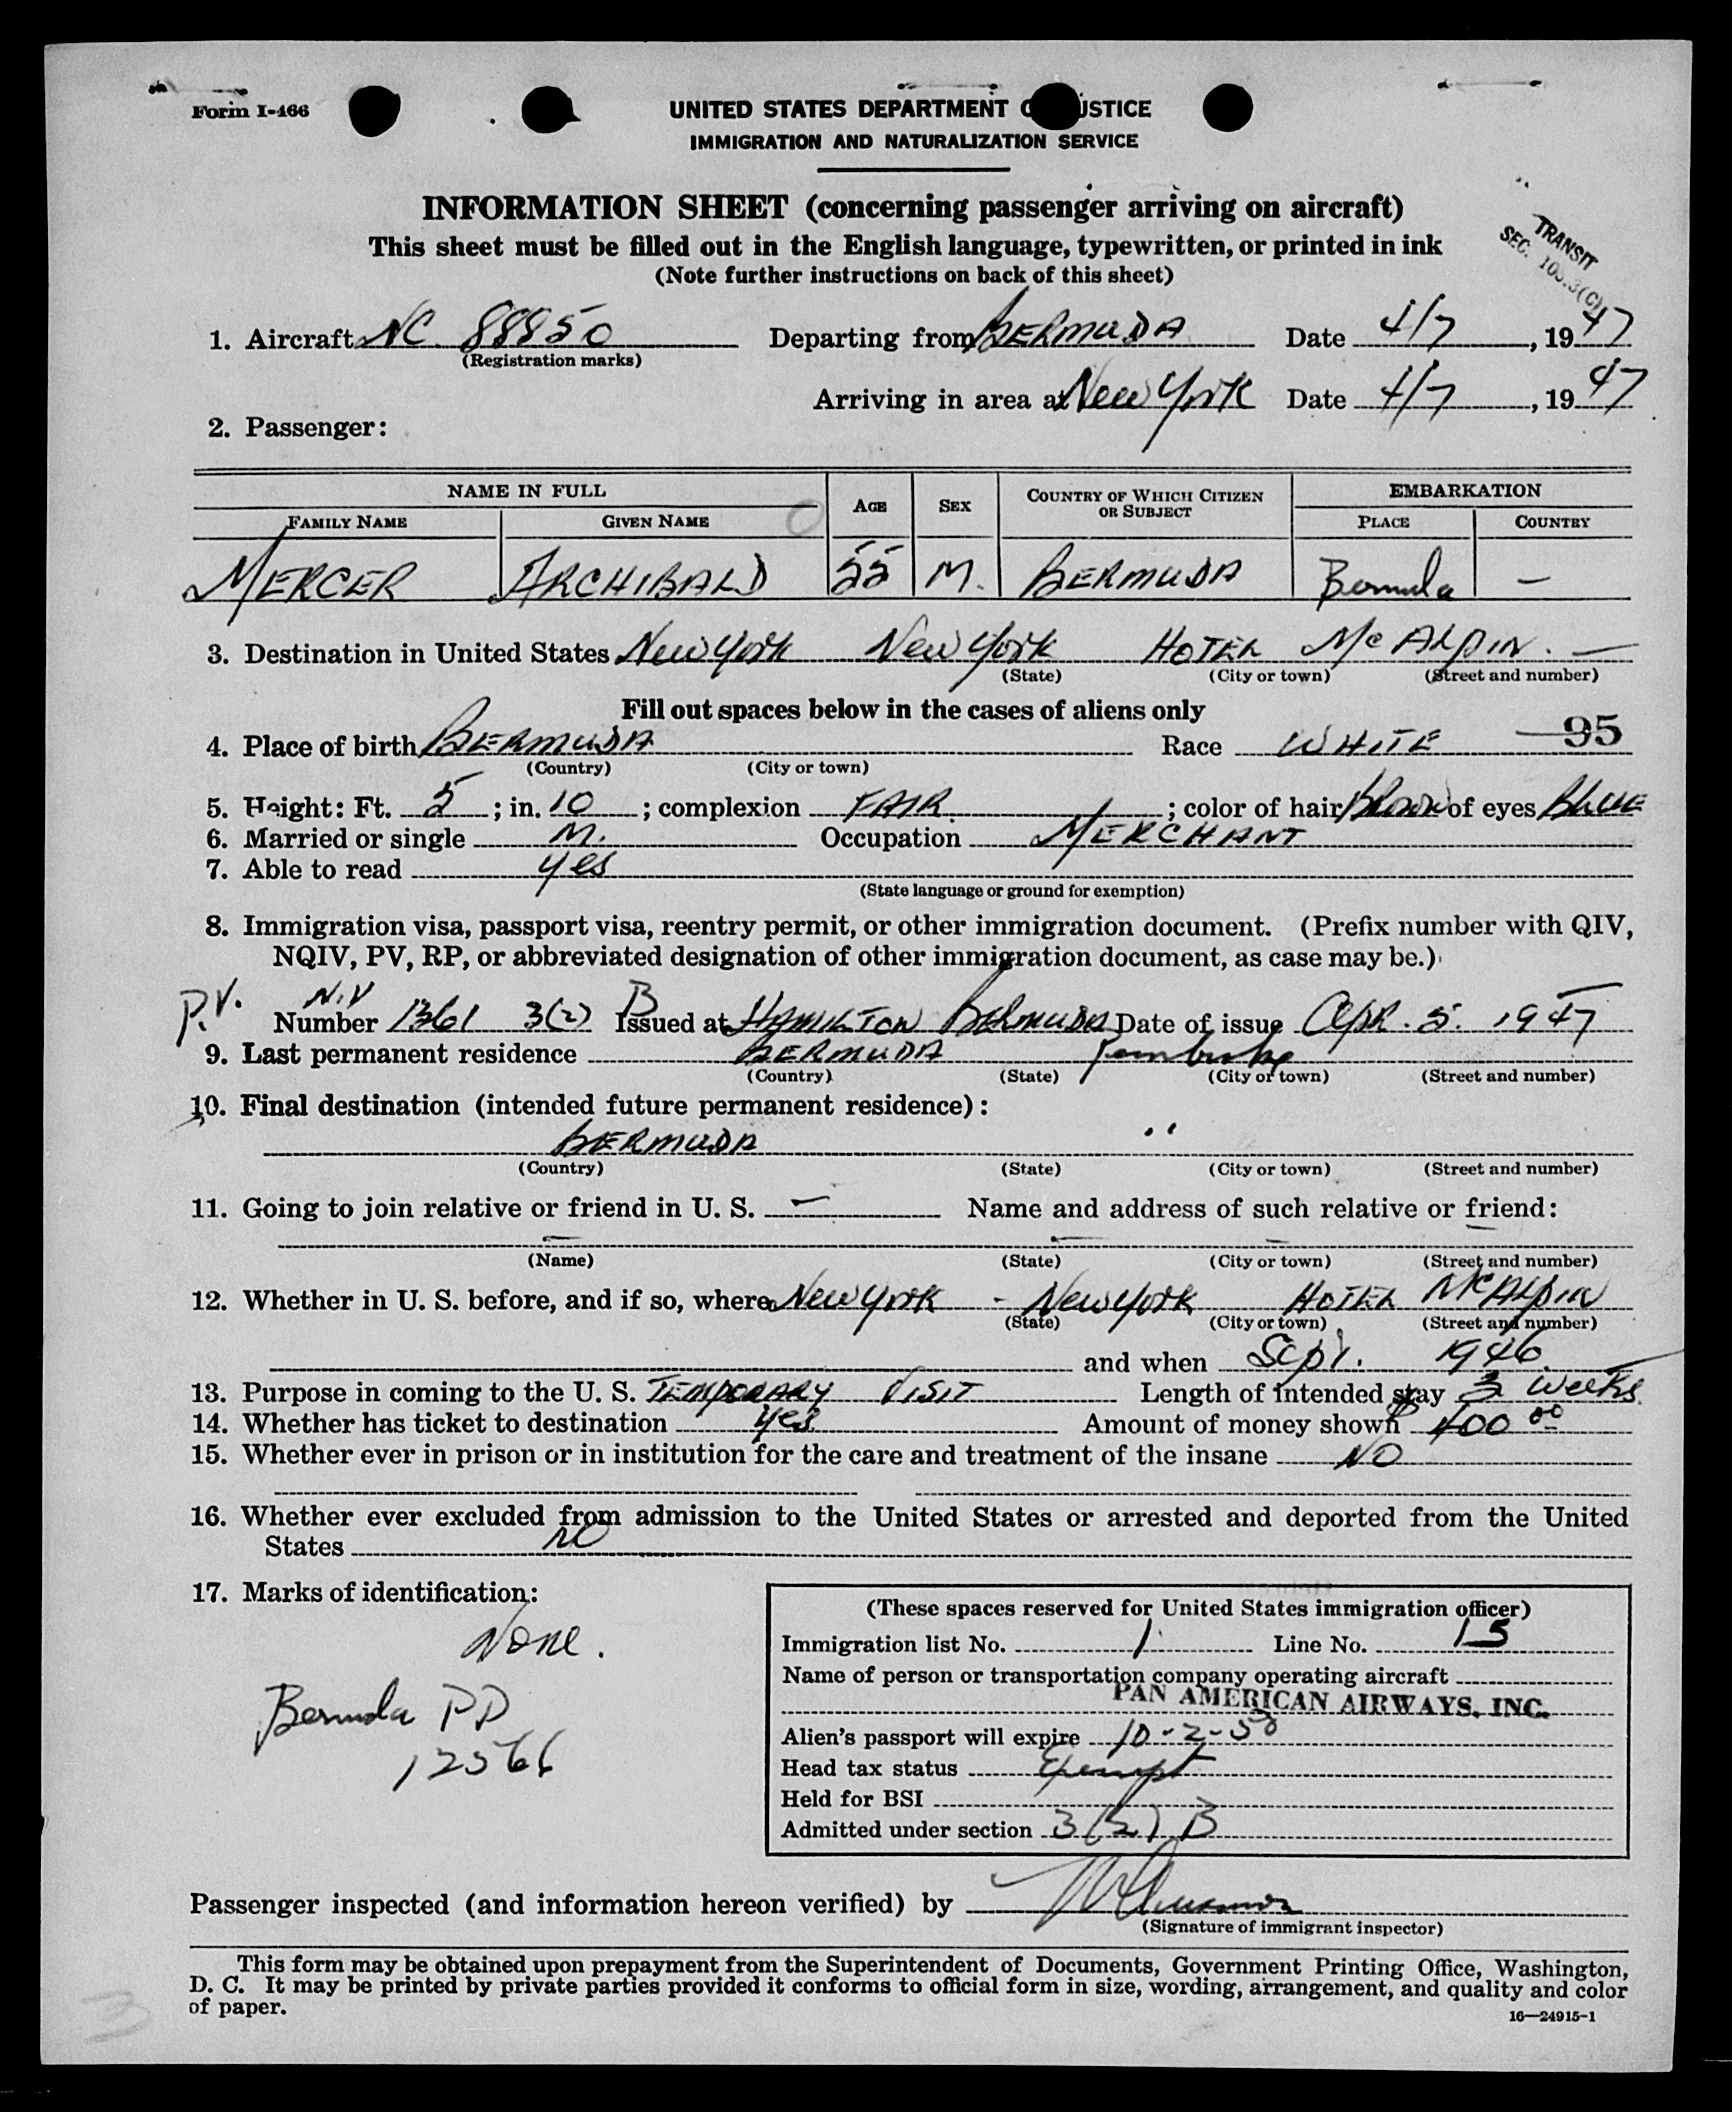 Form I-466
UNITED STATES DEPARTMENT O JUSTICE
IMMIGRATION AND NATURALIZATION SERVICE
INFORMATION SHEET (concerning passenger arriving on aircraft)
This sheet must be filled out in the English language, typewritten, or printed in ink
(Note further instructions on back of this sheet)
TRANSIT
SEC.
1. Aircraft NC 88850 Departing from BERMUDA Date 4/7, 1947
(Registration marks)
Arriving in area at New York Date 4/7, 1947
2. Passenger:
NAME IN FULL AGE SEX COUNTRY OF WHICH CITIZEN OR SUBJECT EMBARKATION
FAMILY NAME GIVEN NAME PLACE COUNTRY
MERCER ARCHIBALD 55 M. BERMUDA Bermuda —
3. Destination in United States New York New York HOTEL McALPIN. —
(State) (City or town) (Street and number)
Fill out spaces below in the cases of aliens only
4. Place of birth BERMUDA Race WHITE 95
(Country) (City or town)
5. Height: Ft. 5; in. 10; complexion FAIR; color of hair Brown of eyes BLUE
6. Married or single M. Occupation MERCHANT
7. Able to read yes
(State language or ground for exemption)
8. Immigration visa, passport visa, reentry permit, or other immigration document. (Prefix number with QIV,
NQIV, PV, RP, or abbreviated designation of other immigration document, as case may be.)
P.V. N.V B
Number 1361 3(2) Issued at HAMILTON BERMUDA Date of issue Apr. 5. 1947
9. Last permanent residence BERMUDA Pembroke
(Country) (State) (City or town) (Street and number)
10. Final destination (intended future permanent residence):
BERMUDA "
(Country) (State) (City or town) (Street and number)
11. Going to join relative or friend in U. S. — Name and address of such relative or friend:
— — —
(Name) (State) (City or town) (Street and number)
12. Whether in U. S. before, and if so, where New York - New York HOTEL McALPIN
(State) (City or town) (Street and number)
and when Sept. 1946
13. Purpose in coming to the U. S. TEMPORARY VISIT Length of intended stay 3 weeks
14. Whether has ticket to destination yes Amount of money shown $400 00
15. Whether ever in prison or in institution for the care and treatment of the insane NO
16. Whether ever excluded from admission to the United States or arrested and deported from the United
States no
17. Marks of identification:
None.
Bermuda PP
12566
(These spaces reserved for United States immigration officer)
Immigration list No. 1 Line No. 15
Name of person or transportation company operating aircraft
PAN AMERICAN AIRWAYS, INC.
Alien's passport will expire 10-2-50
Head tax status Exempt
Held for BSI
Admitted under section 3(2) B
Passenger inspected (and information hereon verified) by
(Signature of immigrant inspector)
This form may be obtained upon prepayment from the Superintendent of Documents, Government Printing Office, Washington,
D. C. It may be printed by private parties provided it conforms to official form in size, wording, arrangement, and quality and color
of paper.
16—24915-1
3